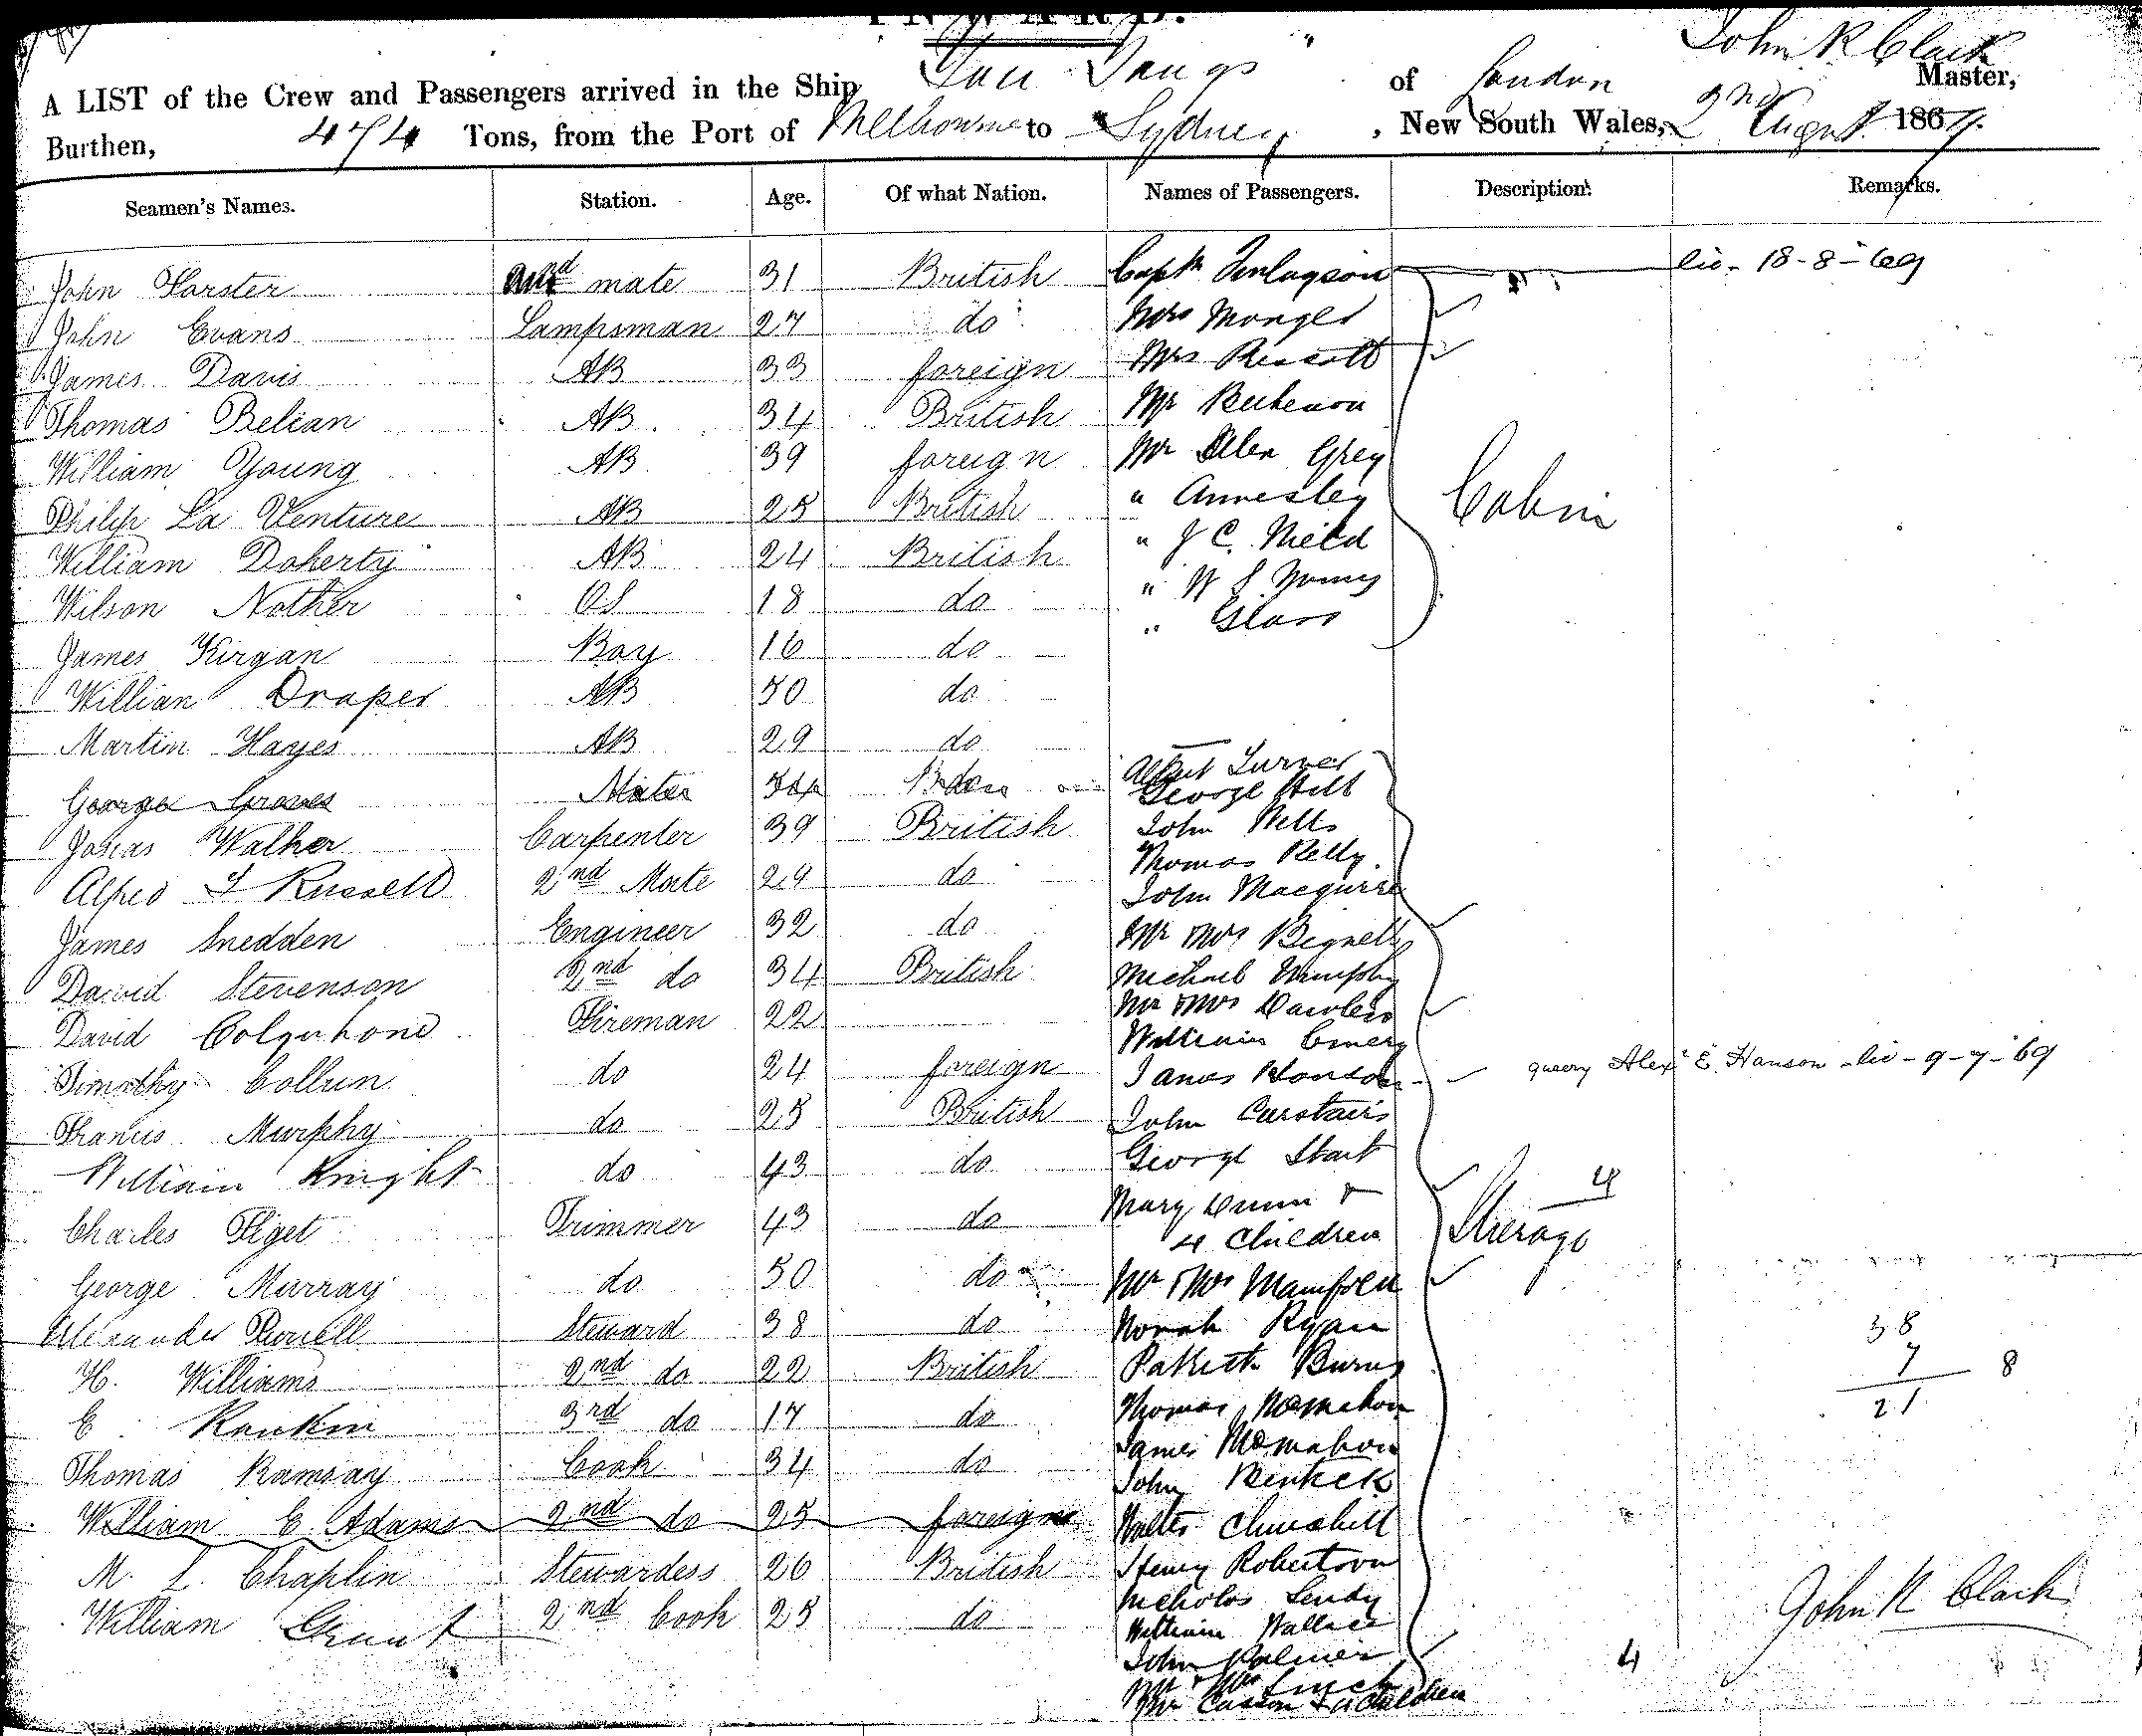 INWARD.
John R Clark
A LIST of the Crew and Passengers arrived in the Ship You Yangs of London Master,
Burthen, 474 Tons, from the Port of Melbourne to Sydney, New South Wales, 2nd August 1869.
Seamen's Names. Station. Age. Of what Nation. Names of Passengers. Description. Remarks.
John Forster mate 31 British Capt Finlayson lic - 18-8-69
John Evans Lampsman 27 do Mrs Monger
James Davis AB 33 foreign Mrs Russell
Thomas Belian AB 34 British Mr
William Young AB 39 foreign Mr Allen Grey
Philip La Venture AB 25 British " Annesley Cabin
William Doherty AB 24 British " J C. Nield
Wilson Nother OS 18 do " W S Young
James Kirgan Boy 16 do " Glass
Willian Draper AB 50 do
Martin Hayes AB 29 do Albert Turner
George Graves Mate do George Hill
Josias Walker Carpenter 39 British John Wells
Thomas Kelly.
Alfred J Russell 2nd Mate 29 do John Macguire
James Snedden Engineer 32 do Mr & Mrs Bignell
David Stevenson 2nd do 34 British Michael Murphy
Mr & Mrs
David Colquhond Fireman 22 William Emery
Timothy Collun do 24 foreign James Hanson query Alexr E. Hanson - lic - 9-7-69
Francis Murphy do 25 British John Carstairs
William Knight do 43 do George Start
Charles Figet Trimmer 43 do Mary Dunn & 4
4 Children Steerage
George Murray do 50 do Mr & Mrs
Alexander Powell Steward 38 do Norah Ryan 38
H. Williams 2nd do 22 British Patrick Burns 7 8
E Rankin 3rd do 17 do Thomas McMahon 21
James McMahon
Thomas Ramsay Cook 34 do John
William E. Adams 2nd do 25 foreign Walter Churchill
M. L. Chaplin Stewardess 26 British Henry Robertson
Nicholas Lendy
William Grant 2nd Cook 25 do William Wallace John R Clark
John Palmer 4
Mr & Mrs Lynch
Mrs Casson & 4 Children